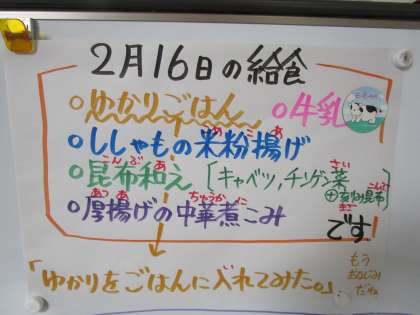 2月16日の給食
○ゆかりごはん ○牛乳
○ししゃもの米粉揚げ
○昆布和え [キャベツ,チンゲン菜
⊕刻み昆布
○厚揚げの中華煮こみ
です
「ゆかりをごはんに入れてみた。」
もう
おなじみ
だね